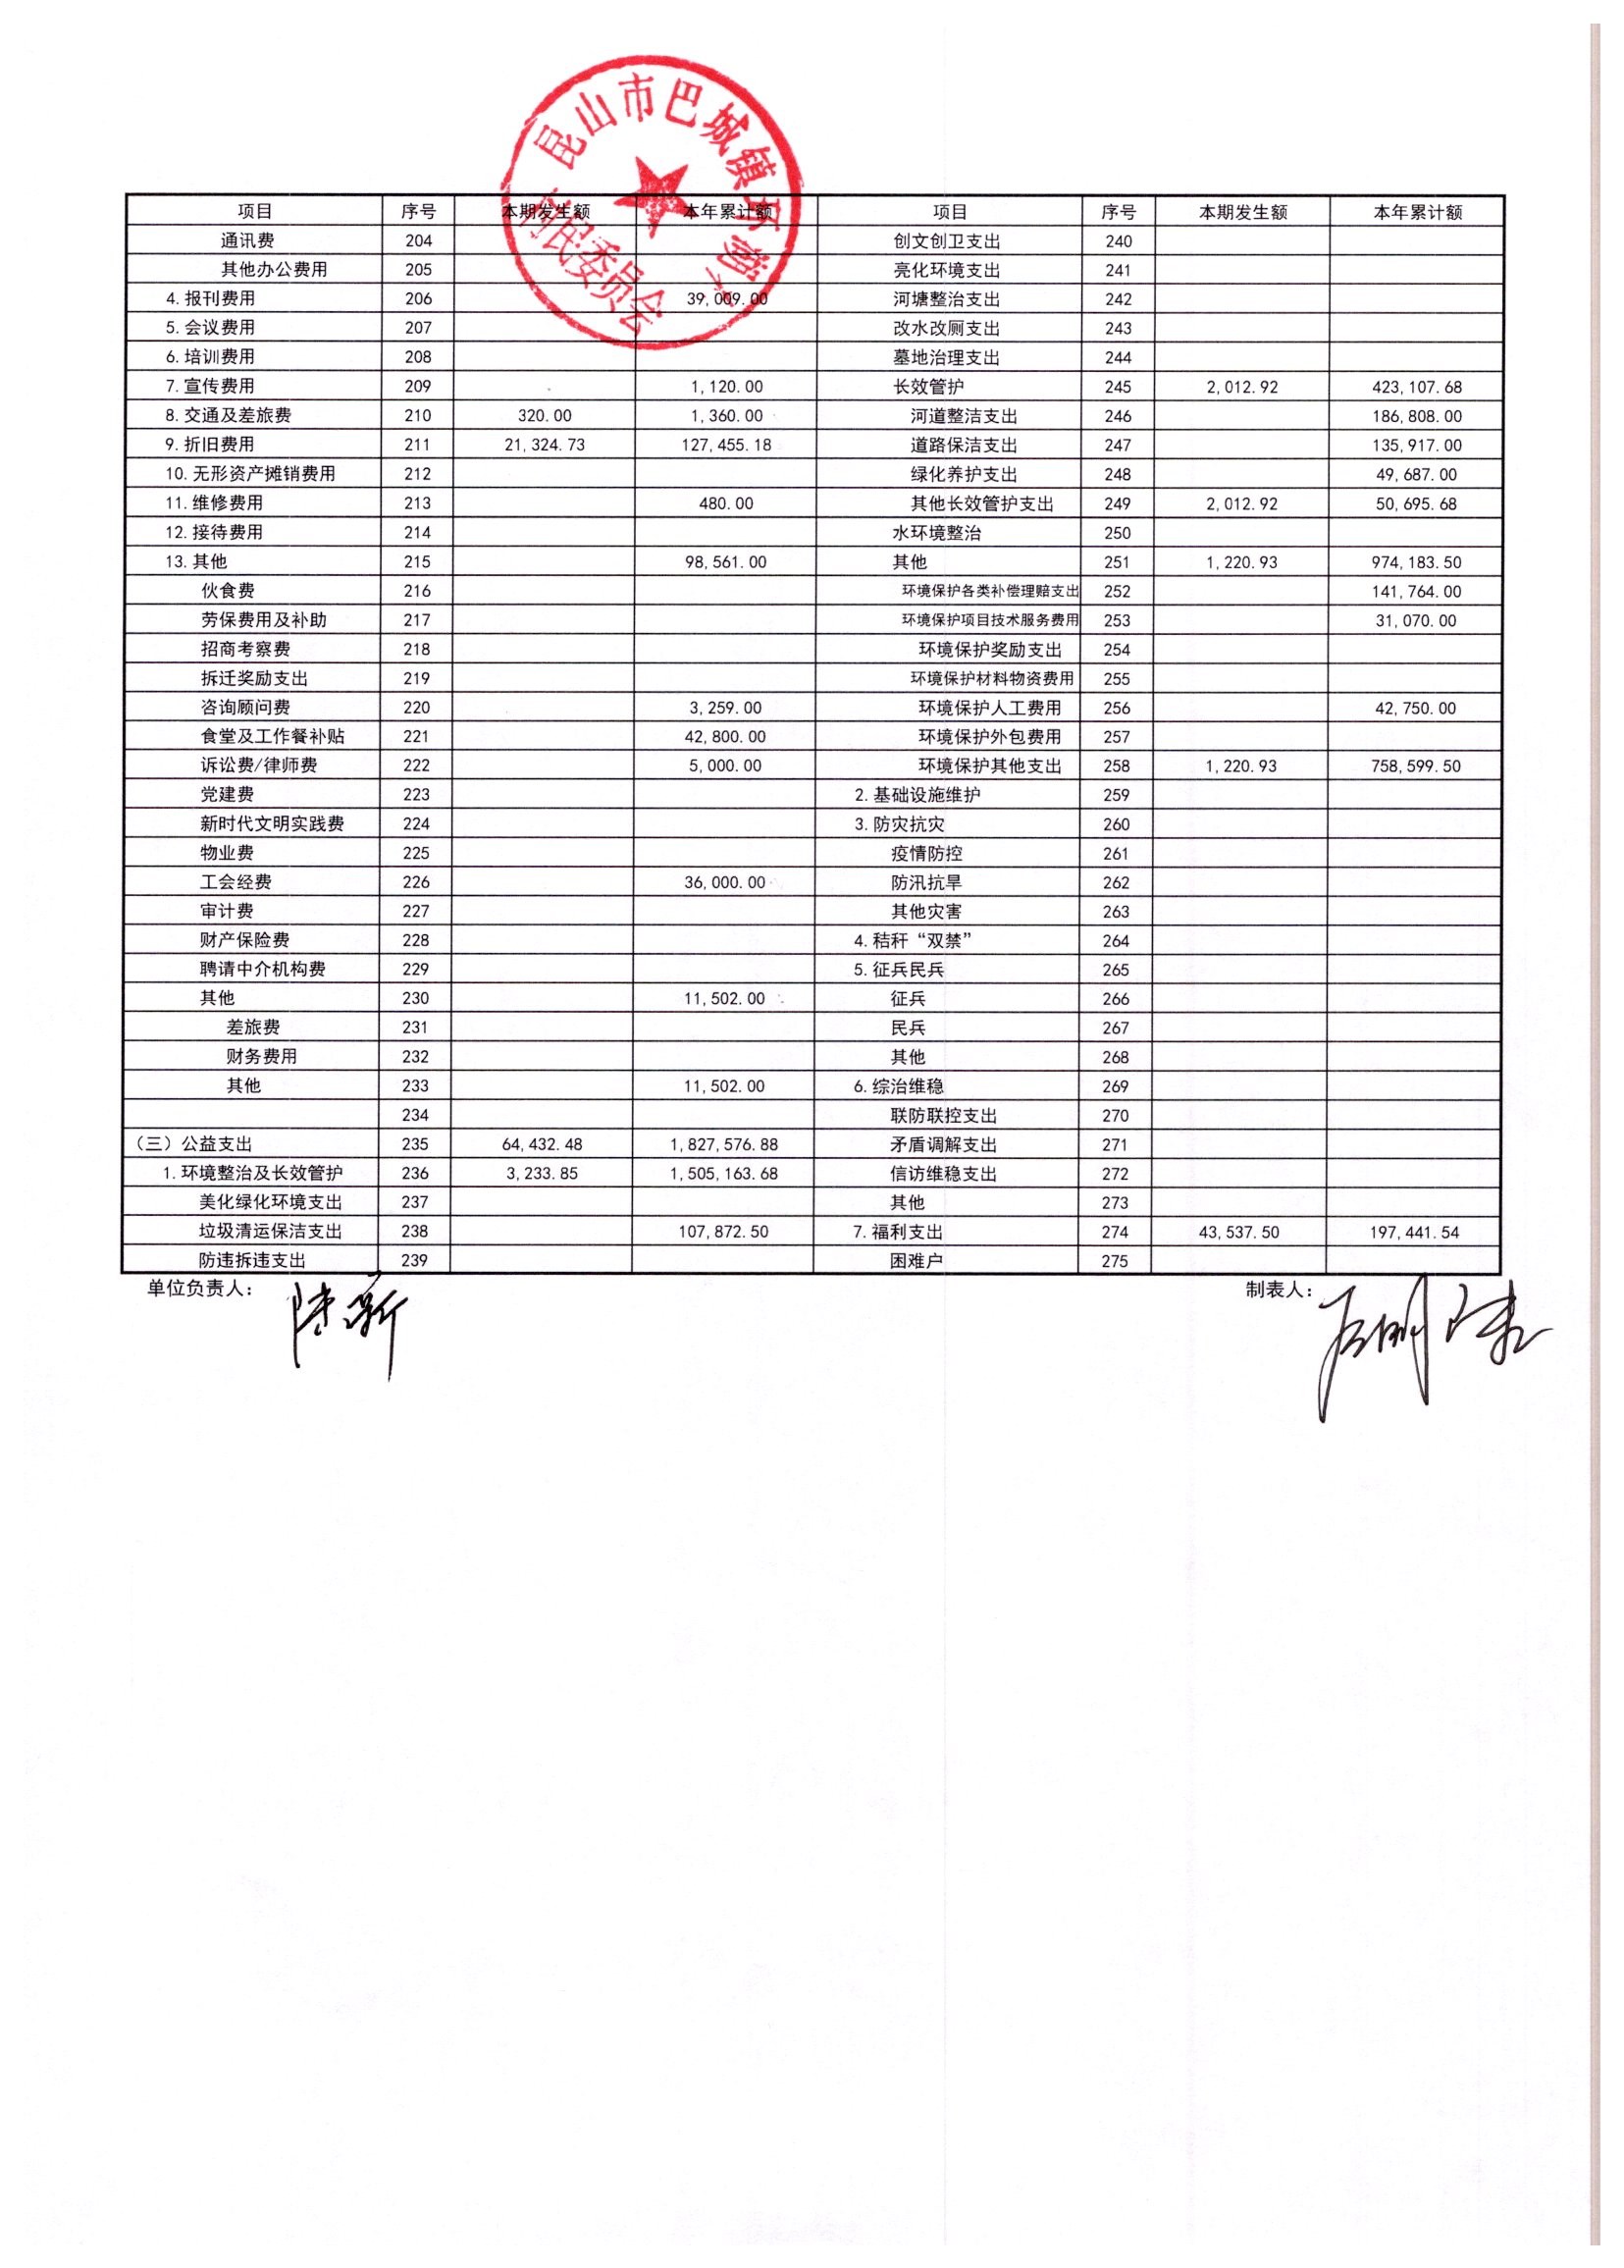 昆山市巴城镇
村民委员会
项目 序号 本期发生额 本年累计额 项目 序号 本期发生额 本年累计额
通讯费 204 创文创卫支出 240
其他办公费用 205 亮化环境支出 241
4. 报刊费用 206 39,009.00 河塘整治支出 242
5. 会议费用 207 改水改厕支出 243
6. 培训费用 208 墓地治理支出 244
7. 宣传费用 209 1,120.00 长效管护 245 2,012.92 423,107.68
8. 交通及差旅费 210 320.00 1,360.00 河道整洁支出 246 186,808.00
9. 折旧费用 211 21,324.73 127,455.18 道路保洁支出 247 135,917.00
10. 无形资产摊销费用 212 绿化养护支出 248 49,687.00
11. 维修费用 213 480.00 其他长效管护支出 249 2,012.92 50,695.68
12. 接待费用 214 水环境整治 250
13. 其他 215 98,561.00 其他 251 1,220.93 974,183.50
伙食费 216 环境保护各类补偿理赔支出 252 141,764.00
劳保费用及补助 217 环境保护项目技术服务费用 253 31,070.00
招商考察费 218 环境保护奖励支出 254
拆迁奖励支出 219 环境保护材料物资费用 255
咨询顾问费 220 3,259.00 环境保护人工费用 256 42,750.00
食堂及工作餐补贴 221 42,800.00 环境保护外包费用 257
诉讼费/律师费 222 5,000.00 环境保护其他支出 258 1,220.93 758,599.50
党建费 223 2. 基础设施维护 259
新时代文明实践费 224 3. 防灾抗灾 260
物业费 225 疫情防控 261
工会经费 226 36,000.00 防汛抗旱 262
审计费 227 其他灾害 263
财产保险费 228 4. 秸秆“双禁” 264
聘请中介机构费 229 5. 征兵民兵 265
其他 230 11,502.00 征兵 266
差旅费 231 民兵 267
财务费用 232 其他 268
其他 233 11,502.00 6. 综治维稳 269
234 联防联控支出 270
（三）公益支出 235 64,432.48 1,827,576.88 矛盾调解支出 271
1. 环境整治及长效管护 236 3,233.85 1,505,163.68 信访维稳支出 272
美化绿化环境支出 237 其他 273
垃圾清运保洁支出 238 107,872.50 7. 福利支出 274 43,537.50 197,441.54
防违拆违支出 239 困难户 275
单位负责人： 制表人：